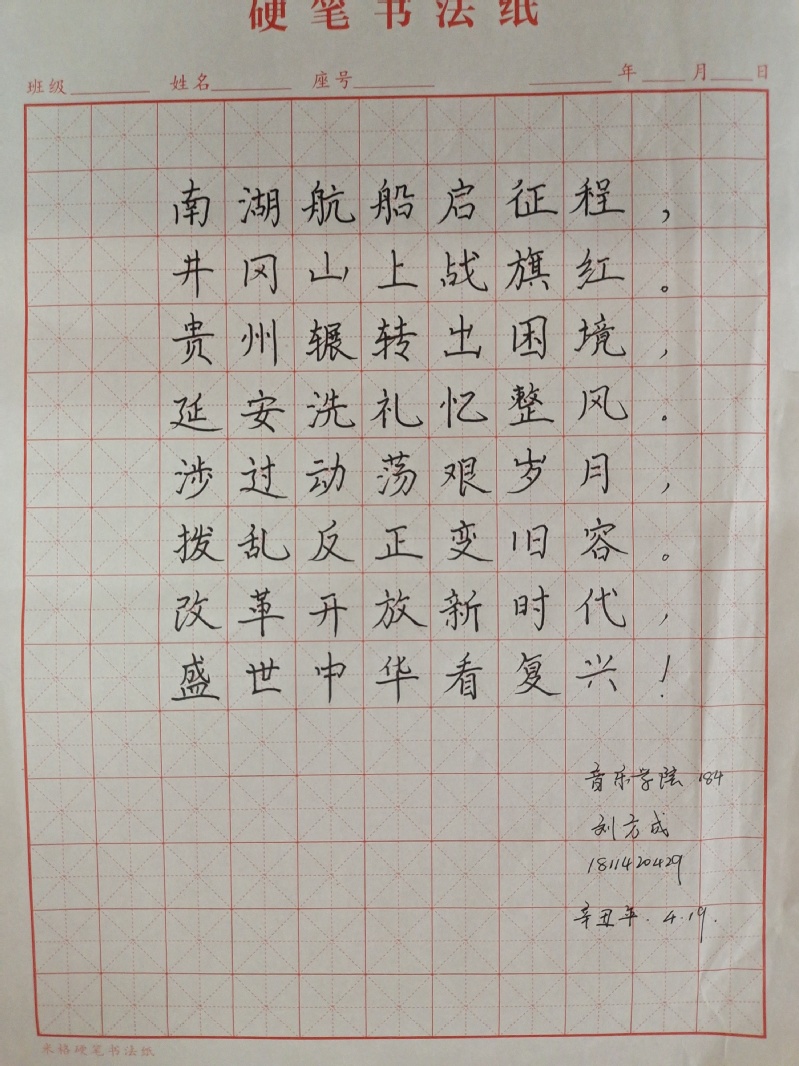 硬笔书法纸
班级 姓名 座号 年 月 日
南湖航船启征程，
井冈山上战旗红。
贵州辗转出困境，
延安洗礼忆整风。
涉过动荡艰岁月，
拨乱反正变旧容。
改革开放新时代，
盛世中华看复兴！
音乐学院 184
刘方成
1811420429
辛丑年.4.19.
米格硬笔书法纸